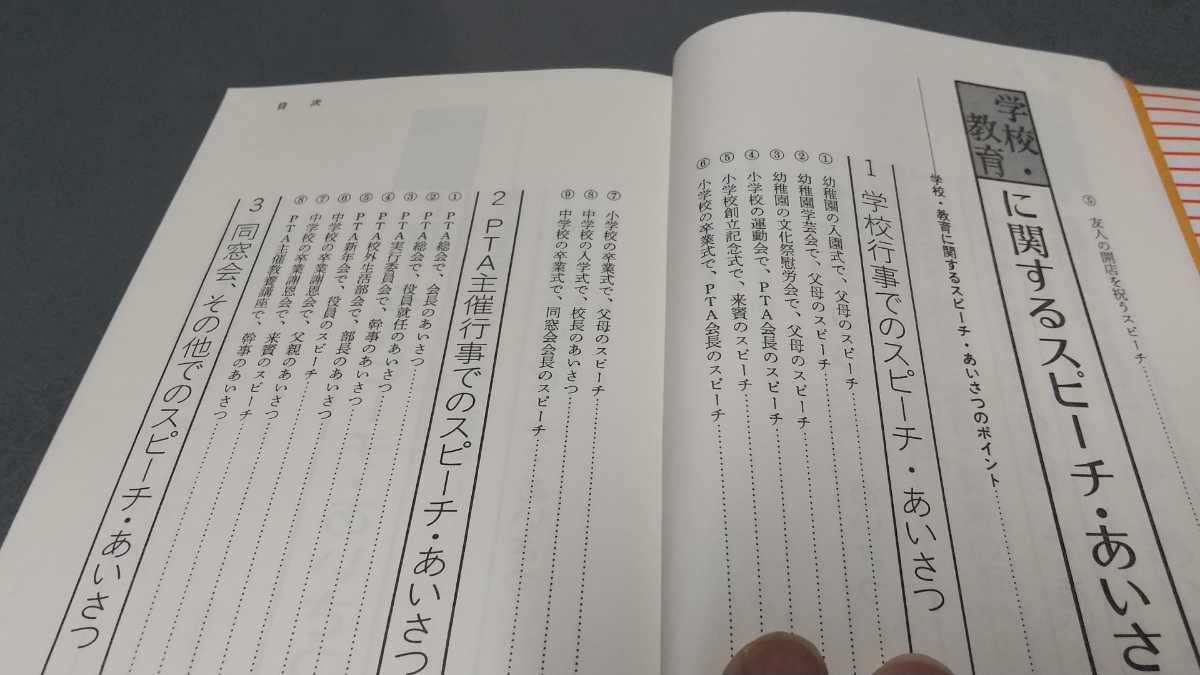 ⑤ 友人の開店を祝うスピーチ
学校・教育に関するスピーチ・あいさ
学校・教育に関するスピーチ・あいさつのポイント
1 学校行事でのスピーチ・あいさつ
① 幼稚園の入園式で、父母のスピーチ
② 幼稚園学芸会で、父母のスピーチ
③ 幼稚園の文化祭慰労会で、父母のスピーチ
④ 小学校の運動会で、PTA会長のスピーチ
⑤ 小学校創立記念式で、来賓のスピーチ
⑥ 小学校の卒業式で、PTA会長のスピーチ
目次
⑦ 小学校の卒業式で、父母のスピーチ
⑧ 中学校の入学式で、校長のあいさつ
⑨ 中学校の卒業式で、同窓会会長のスピーチ
2 PTA主催行事でのスピーチ・あいさつ
① PTA総会で、会長のあいさつ
② PTA総会で、役員就任のあいさつ
③ PTA実行委員会で、幹事のあいさつ
④ PTA校外生活部会で、部長のあいさつ
⑤ PTA新年会で、役員のあいさつ
⑥ 中学校の卒業謝恩会で、役員のスピーチ
⑦ 中学校の卒業謝恩会で、父親のあいさつ
⑧ PTA主催教養講座で、来賓のスピーチ
3 同窓会、その他でのスピーチ・あいさつ